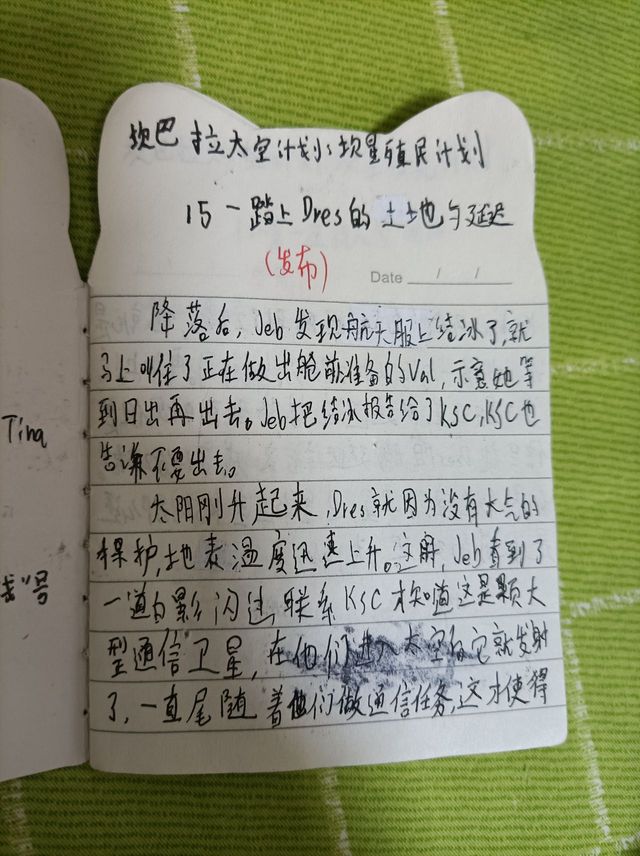 坎巴拉太空计划:坎星殖民计划
15一踏上Dres的土地与延迟
(发布)
Date / /
降落后,Jeb发现航天服上结冰了,就
马上叫住了正在做出舱前准备的Val,示意她等
到日出再出去。Jeb把结冰报告给了KSC,KSC也
告诉不要出去。
太阳刚升起来,Dres就因为没有大气的
保护,地表温度迅速上升。这时,Jeb看到了
一道白影闪过,联系KSC才知道这是颗大
型通信卫星,在他们进入太空后它就发射
了,一直尾随着他们做通信任务,这才使得
Tina
号